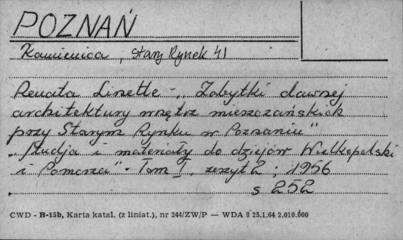 POZNAŃ
Kamienica, Stary Rynek 41
Renata Linette - „Zabytki dawnej
architektury wnętrz mieszczańskich
przy Starym Rynku w Poznaniu"
„Studja i materiały do dziejów Wielkopolski
i Pomorza" - Tom I, zeszyt 2; 1956
s 252
CWD - B-15b, Karta katal. (z liniat.), nr 244/ZW/P — WDA 8 23.1.64 2.010.000